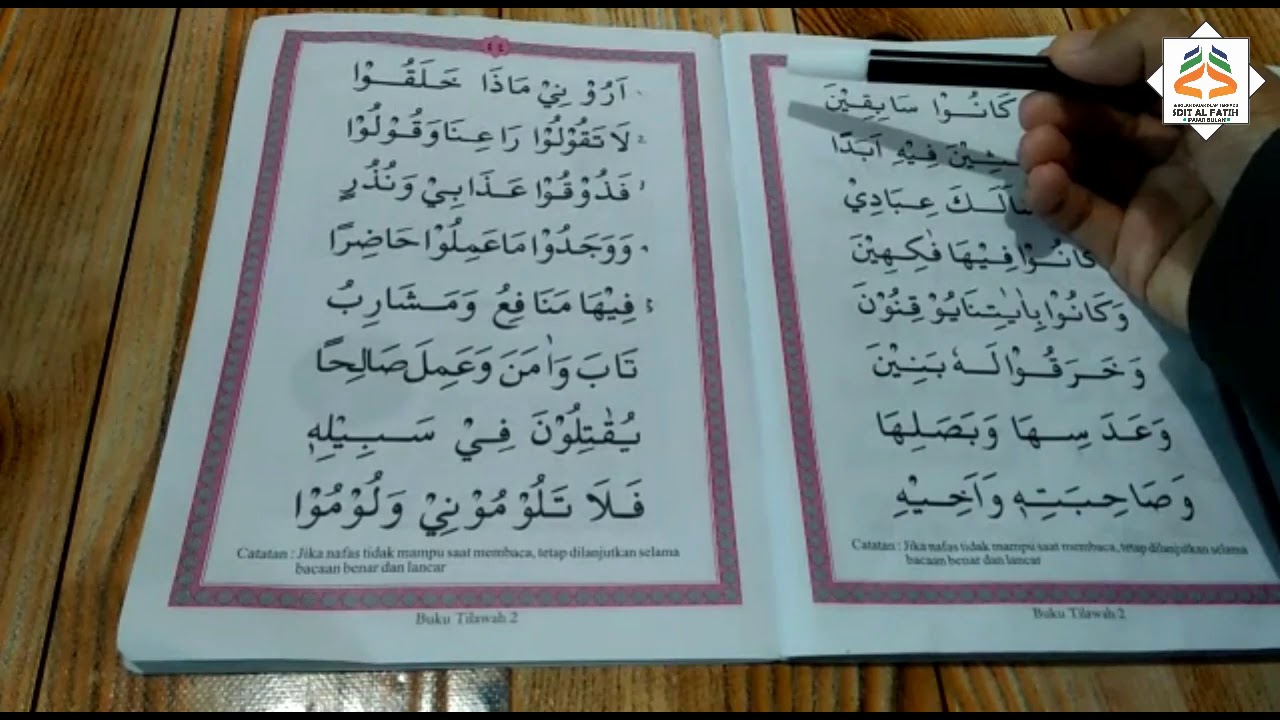 ٤٤
اَرُوْ نِيْ مَاذَا خَلَقُوْا
لَا تَقُوْلُوْا رَاعِنَا وَقُوْلُوْا
فَذُوْقُوْا عَذَابِيْ وَنُذُرِ
وَوَجَدُوْا مَا عَمِلُوْا حَاضِرًا
فِيْهَا مَنَافِعُ وَمَشَارِبُ
تَابَ وَاٰمَنَ وَعَمِلَ صَالِحًا
يُقٰتِلُوْنَ فِيْ سَبِيْلِهٖ
فَلَا تَلُوْمُوْنِيْ وَلُوْمُوْا
Catatan : Jika nafas tidak mampu saat membaca, tetap dilanjutkan selama
bacaan benar dan lancar
Buku Tilawah 2
كَانُوْا سَابِقِيْنَ
فِيْهِ اَبَدًا
عِبَادِيْ
كَانُوْا فِيْهَا فٰكِهِيْنَ
وَكَانُوْا بِاٰيٰتِنَا يُوْقِنُوْنَ
وَخَرَقُوْا لَهٗ بَنِيْنَ
وَعَدَسِهَا وَبَصَلِهَا
وَصَاحِبَتِهٖ وَاَخِيْهِ
Catatan : Jika nafas tidak mampu saat membaca, tetap dilanjutkan selama
bacaan benar dan lancar
Buku Tilawah 2
SDIT AL FATIH